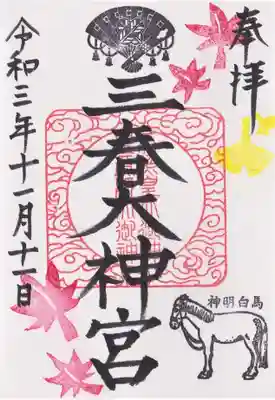 奉拝
三春大神宮
令和三年十一月十一日
神明白馬